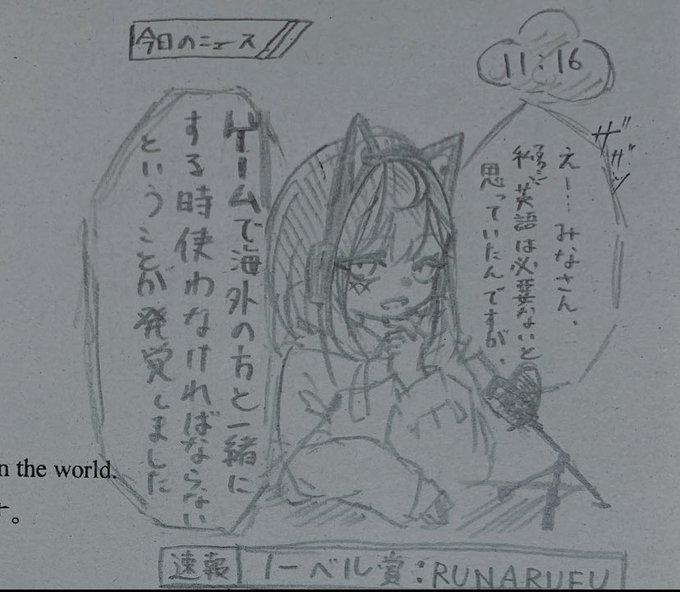 今日のニュース
11:16
ザザッ
えー…みなさん、
私に英語は必要ないと
思っていたんですが、
ゲームで海外の方と一緒に
する時使わなければならない
ということが発覚しました
n the world.
す。
速報
ノーベル賞:RUNARUFU